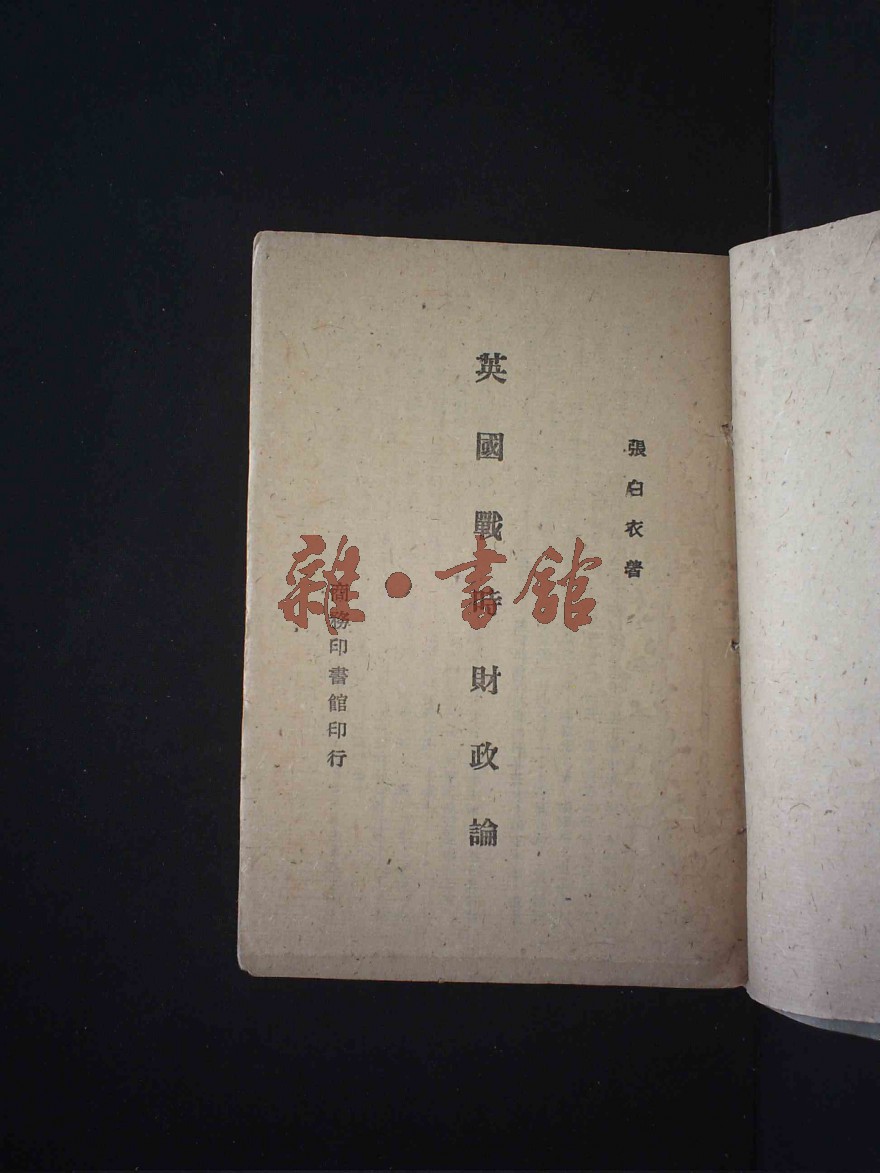 張白衣著
英國戰時財政論
商務印書館印行
雜·書館